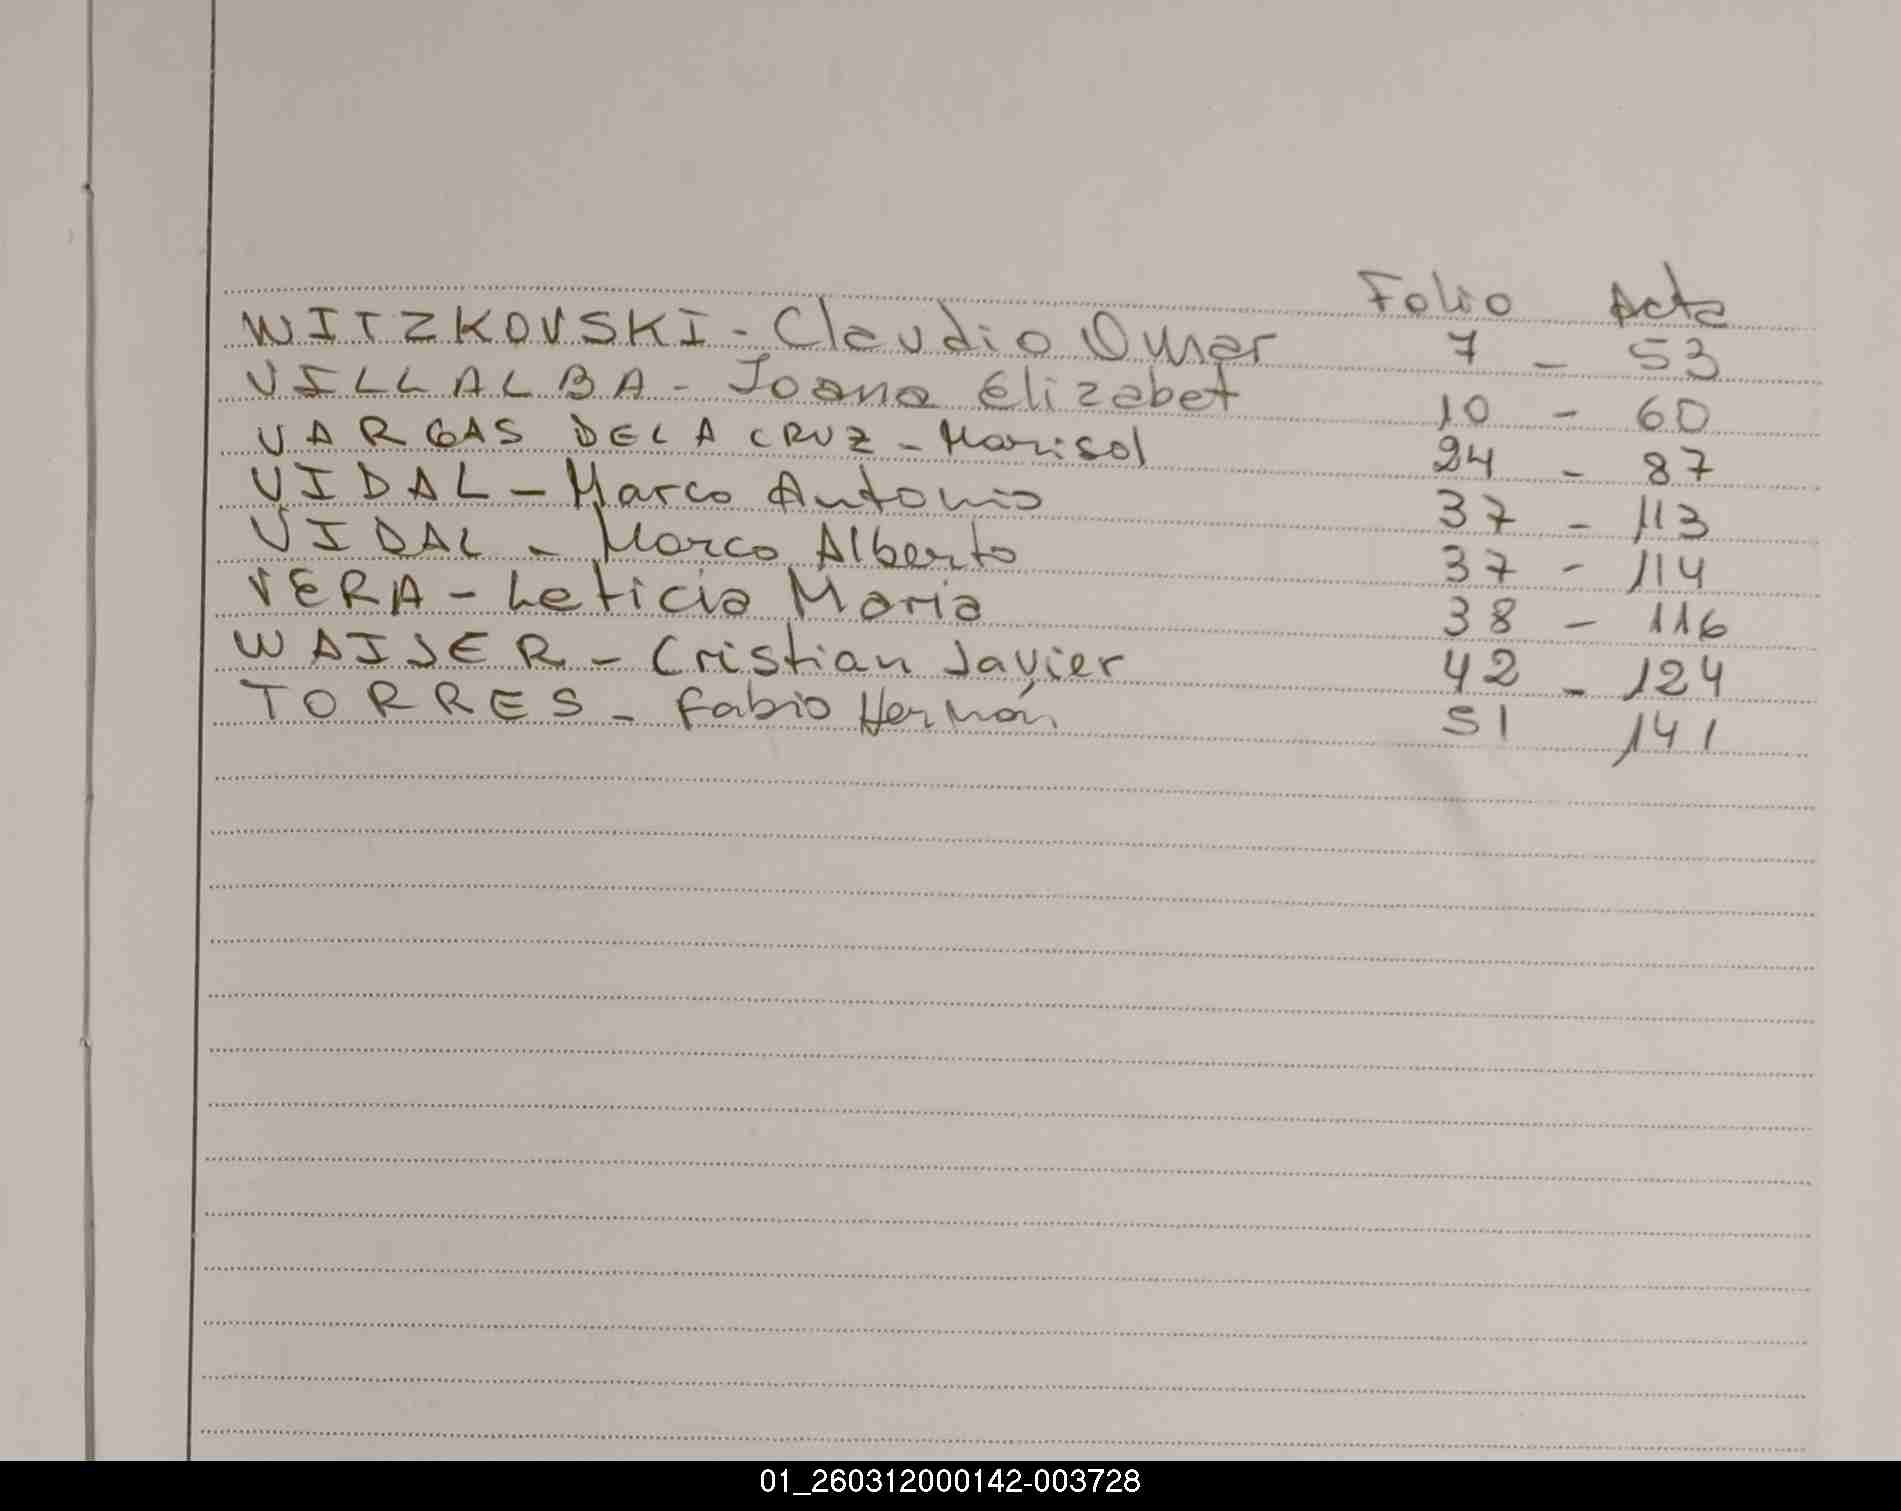 Folio Acta
WITZKOVSKI - Claudio Omar 7 - 53
VILLALBA - Joana Elizabet 10 - 60
VARGAS DE LA CRUZ - Marisol 24 - 87
VIDAL - Marco Antonio 37 - 113
VIDAL - Marco Alberto 37 - 114
VERA - Leticia Maria 38 - 116
WAISER - Cristian Javier 42 - 124
TORRES - Fabio Hernán 51 141
01_260312000142-003728